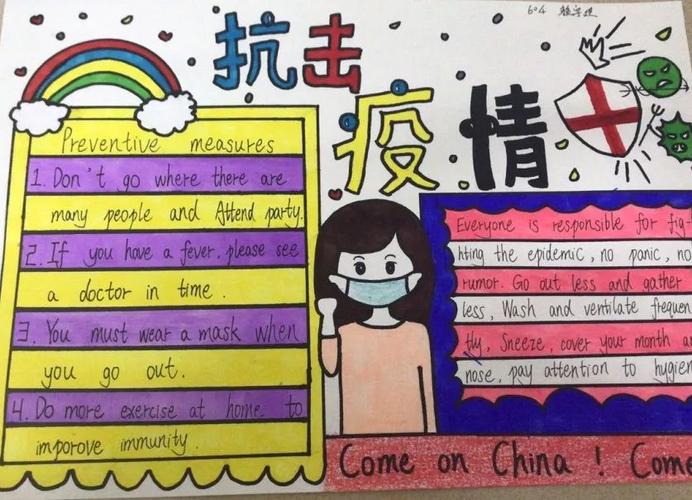 604
抗击
疫情
Preventive measures
1. Don't go where there are
many people and Attend party.
2. If you have a fever, please see
a doctor in time.
3. You must wear a mask when
you go out.
4. Do more exercise at home to
imporove immunity.
Everyone is responsible for fig-
hting the epidemic, no panic, no
rumor. Go out less and gather
less, Wash and ventilate frequen
tly, Sneeze, cover your month a
nose, pay attention to hygien
Come on China ! Come